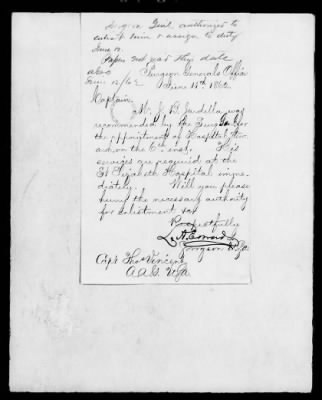 Genl authorizes to
enlist him & assign to duty
June 12.
Papers not yet
June 12/62
Surgeon Generals Office
June 11th 1862
Captain,
Mr. J. B. was
recommended by the Surg Genl for
the appointment of Hospital Stew
ard on the 6th inst. His
services are required at the
St Elizabeth Hospital imme
diately. Will you please
the necessary authority
for enlistment
Respectfully
L. A. Edwards
Surgeon USA
Capt Thos Vincent
A.A.G. USA